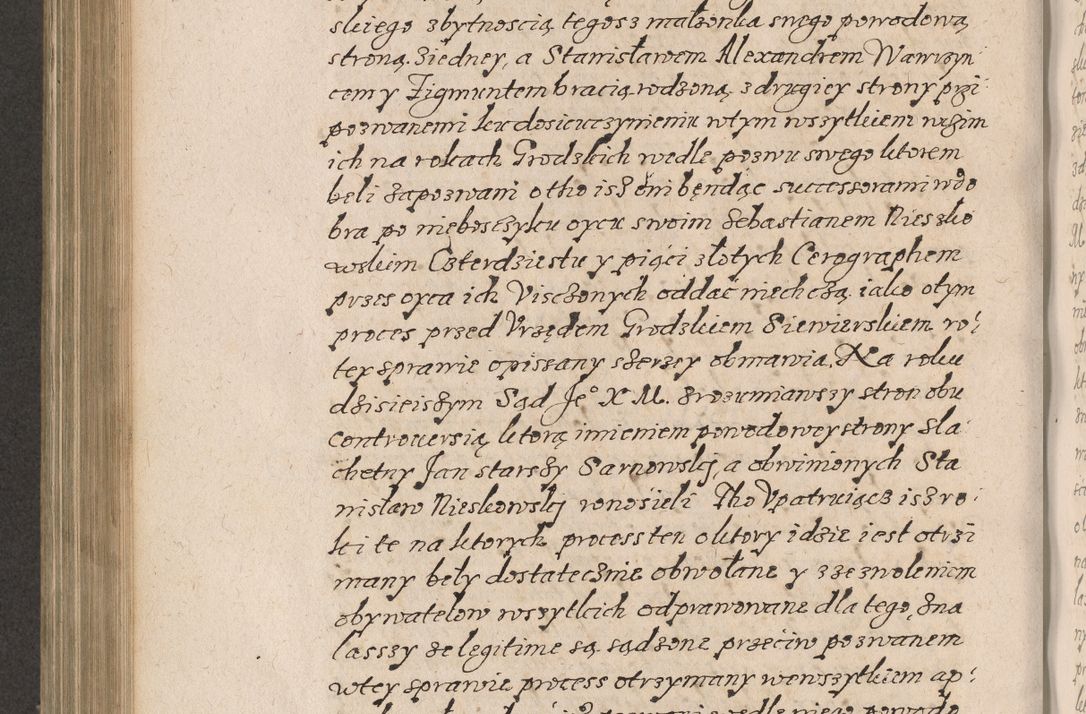 skiego zbytnoscią tegosz małzonka swego powodową
stroną ziedney, a Stanisławem Alexandrem Wawrzyn
cem y Zigmuntem bracią rodzoną z drugiey strony przi
pozwanemi ku dosicuczynieniu wtym wszytkiem wszim
ich na rokach Grodzkich wedle pozwu swego ktorem
beli zapozwani o tho isz oni będąc successorami w do
bra po nieboszczyku oycu swoim Sebastianem Niesko
wskim Czterdziestu y pięci złotych Cerographem
przes oyca ich Visczonych oddać niechczą. iako o tym
proces przed Vrzędem Grodzkiem Siewierskiem ro
tey sprawie opissany szerzey obmawia. Na roku
dzisieiszym Sąd Je° X M. zrozumiawszy stron obu
controuersią ktorą imieniem powodowey strony Sla
chetny Jan starszy Sarnowskj, a obwinionych Sta
nisław Nieskowskj wnosieli Tho Vpatruiącz isz ro
ki te na ktorych process ten o ktory idzie iest otrzi
many beły dostatecznie obwołane y z zezwoleniem
obywatelow wszytkich odprawowane dla tego zna
lasszy ze legitime są sądzone przeciw pozwanem
w tey sprawie process otrzymany we wszytkiem ap